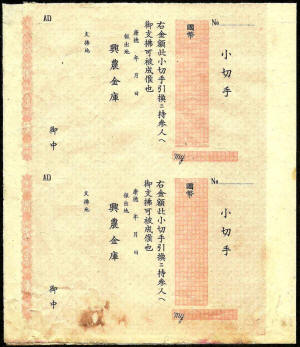 No
小切手
國幣
my
右金額此小切手引換ニ持參人ヘ
御支拂可被成候也
康德 年 月 日
振出地
興農金庫
支拂地
御中
AD
No
小切手
國幣
my
右金額此小切手引換ニ持參人ヘ
御支拂可被成候也
康德 年 月 日
振出地
興農金庫
支拂地
御中
AD